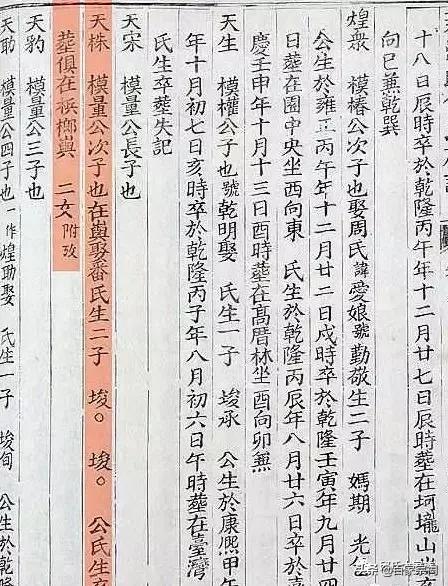 十八日辰時卒於乾隆丙午年十二月廿七日辰時葬在坷壠山
向巳兼乾巽
煌衆 模椿公次子也娶周氏諱愛娘號勤敬生二子 媽期 光
公生於雍正丙午年十二月廿二日戌時卒於乾隆壬寅年九月廿四
日葬在園中央坐西向東 氏生於乾隆丙辰年八月廿六日卒於嘉
慶壬申年十月十三日酉時葬在高厝林坐酉向卯無
天生 模權公子也號乾明娶 氏生一子 埈承 公生於康熙甲午
年十月初七日亥時卒於乾隆丙子年八月初六日午時葬在臺灣
氏生卒葬失記
天宋 模量公長子也
天株 模量公次子也在與娶番氏生二子 埈。 埈。 公氏生卒
葬俱在檳榔與 二女附攷
天豹 模量公三子也
天助 模量公四子也一作煌助娶 氏生一子 埈旬 公生於乾隆
头条 @百家宗祠